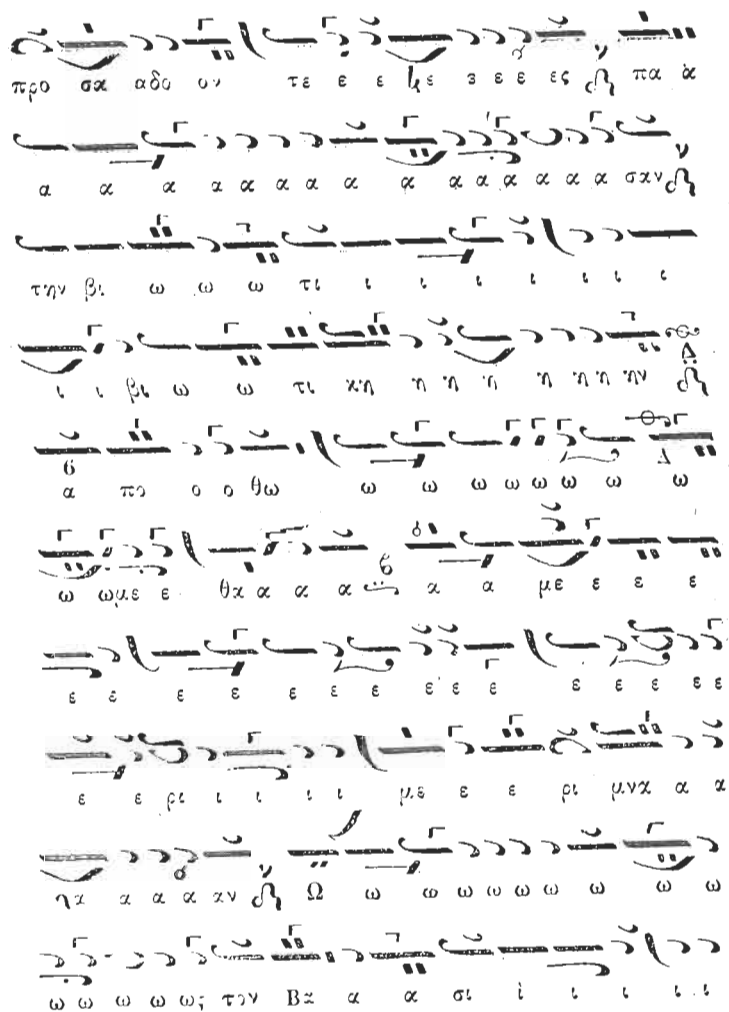 προ σα αδο ον τε ε ε με ε ε ε ες πα α
α α α α α α α α α α α α α α α σαν
την βι ω ω ω τι ι ι ι ι ι ι ι
ι ι βι ω ω τι κη η η η η η η ην
α πο ο ο θω ω ω ω ω ω ω ω ω
ω ωμε ε θα α α α α α με ε ε ε
ε ε ε ε ε ε ε ε ε ε ε ε ε ε ε
ε ε ρι ι ι ι ι με ε ε ρι μνα α α
να α α α αν Ω ω ω ω ω ω ω ω ω ω
ω ω ω ω ως τον Βα α α σι ι ι ι ι ι